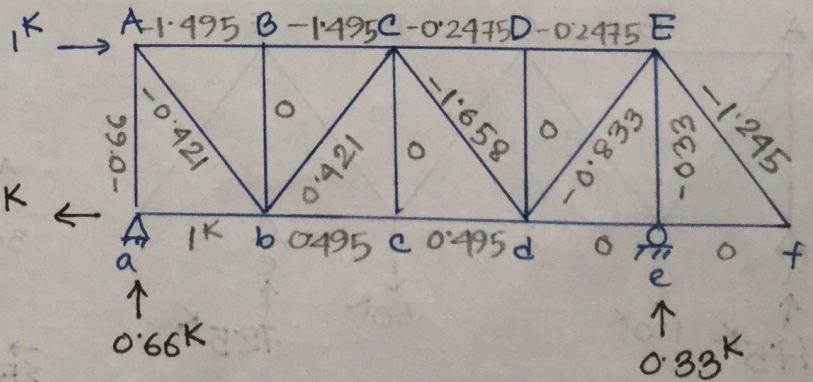 A -1.495 B -1.495 C -0.2475 D -0.2475 E
1K
-0.66 -0.421 0 0.421 0 -1.658 0 -0.833 -0.33 -1.245
K
a 1K b 0.495 c 0.495 d 0 e 0 f
0.66K
0.33K